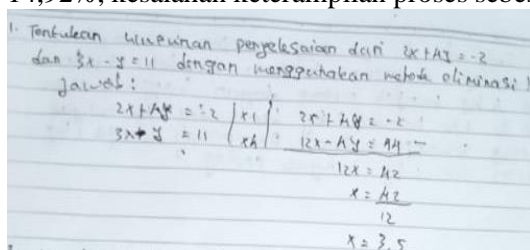 14,92%, kesalahan keterampilan proses sebes
1. Tentukan himpunan penyelesaian dari 2x + 4y = -2
dan 3x - y = 11 dengan menggunakan metode eliminasi!
Jawab :
2x + 4y = -2 | x1 | 2x + 4y = -2
3x - y = 11 | x4 | 12x - 4y = 44 -
12x = 42
x = 42
12
x = 3,5